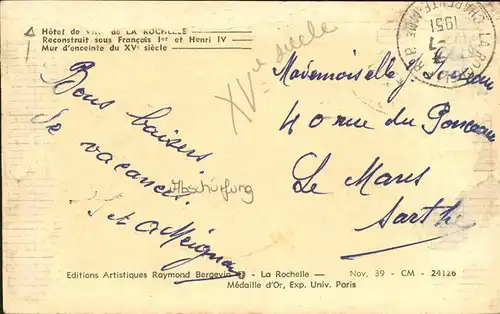 Hôtel de Ville de LA ROCHELLE
Reconstruit sous François Ier et Henri IV
Mur d'enceinte du XVe siècle
XVe siècle
LA ROCHELLE
CHARENTE-MME
1951
Bons baisers
de vacances
et A Meignan
Abschürfung
Mademoiselle J
40 rue du Ponceau
Le Mans
Sarthe
Editions Artistiques Raymond Bergevin - La Rochelle — Nov. 39 - CM - 24126
Médaille d'Or, Exp. Univ. Paris